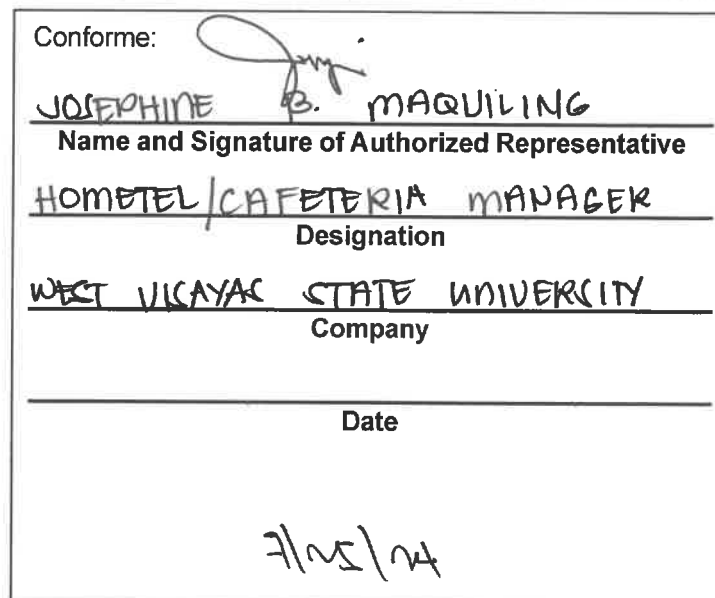 Conforme:
JOSEPHINE B. MAQUILING
Name and Signature of Authorized Representative
HOMETEL/CAFETERIA MANAGER
Designation
WEST VISAYAS STATE UNIVERSITY
Company
Date
7/25/24